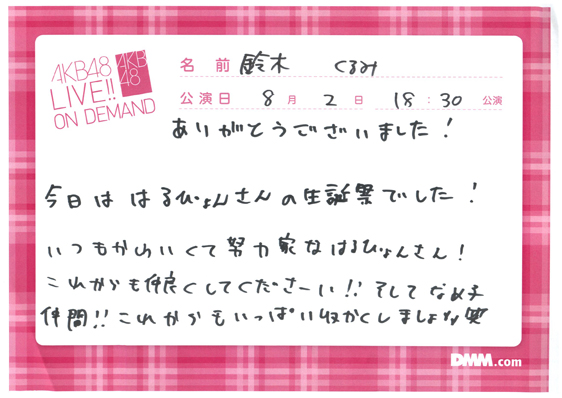 AKB48
LIVE!!
ON DEMAND
AKB
48
名前 鈴木 くるみ
公演日 8月 2日 18:30 公演
ありがとうございました!
今日は はるぴょんさんの生誕祭でした!
いつもかわいくて努力家なはるぴょんさん!
これからも仲良くしてくださーい!! そして なめ子
仲間!! これからもいっぱい収かくしましょな笑
DMM.com